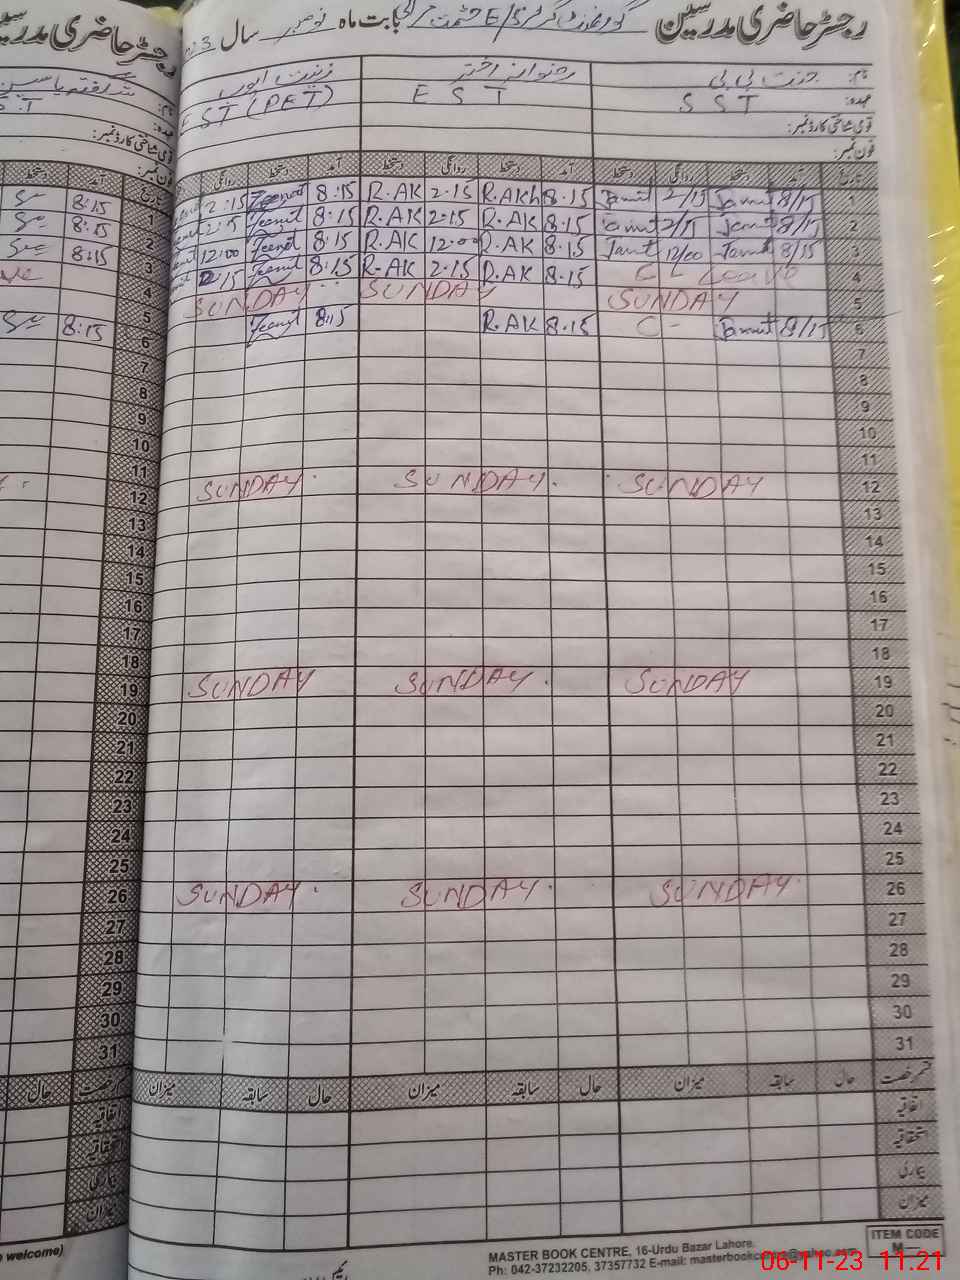 رجسٹر حاضری مدرسین
بابت ماہ نومبر سال
نام: جنت بی بی رضوانہ اختر زینت
عہدہ: S S T E S T E S T (PET)
قومی شناختی کارڈ نمبر:
فون نمبر:
تاریخ آمد دستخط روانگی دستخط آمد دستخط روانگی دستخط آمد دستخط روانگی
1 8/15 2/15 8.15 R.AKh 2.15 R.AK 8:15 2:15
2 8/15 2/15 8.15 R.AK 2:15 R.AK 8:15 2:15
3 8/15 12/00 8.15 R.AK 12:00 R.AK 8:15 12:00
4 C L Leave 8.15 R.AK 2.15 R-AK 8:15 2/15
5 SUNDAY SUNDAY SUNDAY
6 8/15 C- 8.15 R.AK 8:15
7
8
9
10
11
12 SUNDAY SUNDAY SUNDAY
13
14
15
16
17
18
19 SUNDAY SUNDAY SUNDAY
20
21
22
23
24
25
26 SUNDAY SUNDAY SUNDAY
27
28
29
30
31
قسم رخصت حال سابقہ میزان حال سابقہ میزان حال سابقہ میزان
اتفاقیہ
استحقاقیہ
بیماری
میزان
ITEM CODE
M
MASTER BOOK CENTRE, 16-Urdu Bazar Lahore.
Ph: 042-37232205, 37357732 E-mail:
06-11-23 11.21
رجسٹر حاضری مدرسین
نام:
عہدہ: S.T
قومی شناختی کارڈ نمبر:
فون نمبر:
تاریخ آمد دستخط
1 8:15
2 8:15
3 8:15
4
5
6 8:15
7
8
9
10
11
12
13
14
15
16
17
18
19
20
21
22
23
24
25
26
27
28
29
30
31
قسم رخصت حال
اتفاقیہ
استحقاقیہ
بیماری
میزان
welcome)